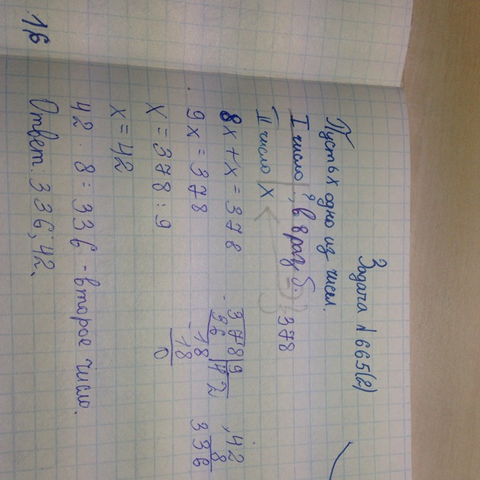 Задача №665(2)
Пусть х одно из чисел.
I число ?, в 8 раз б. 378
II число х
8х + х = 378
9х = 378
х = 378 : 9
х = 42
42 · 8 = 336 - второе число.
Ответ: 336; 42.
378 9
36 42
18
18
0
42
8
336